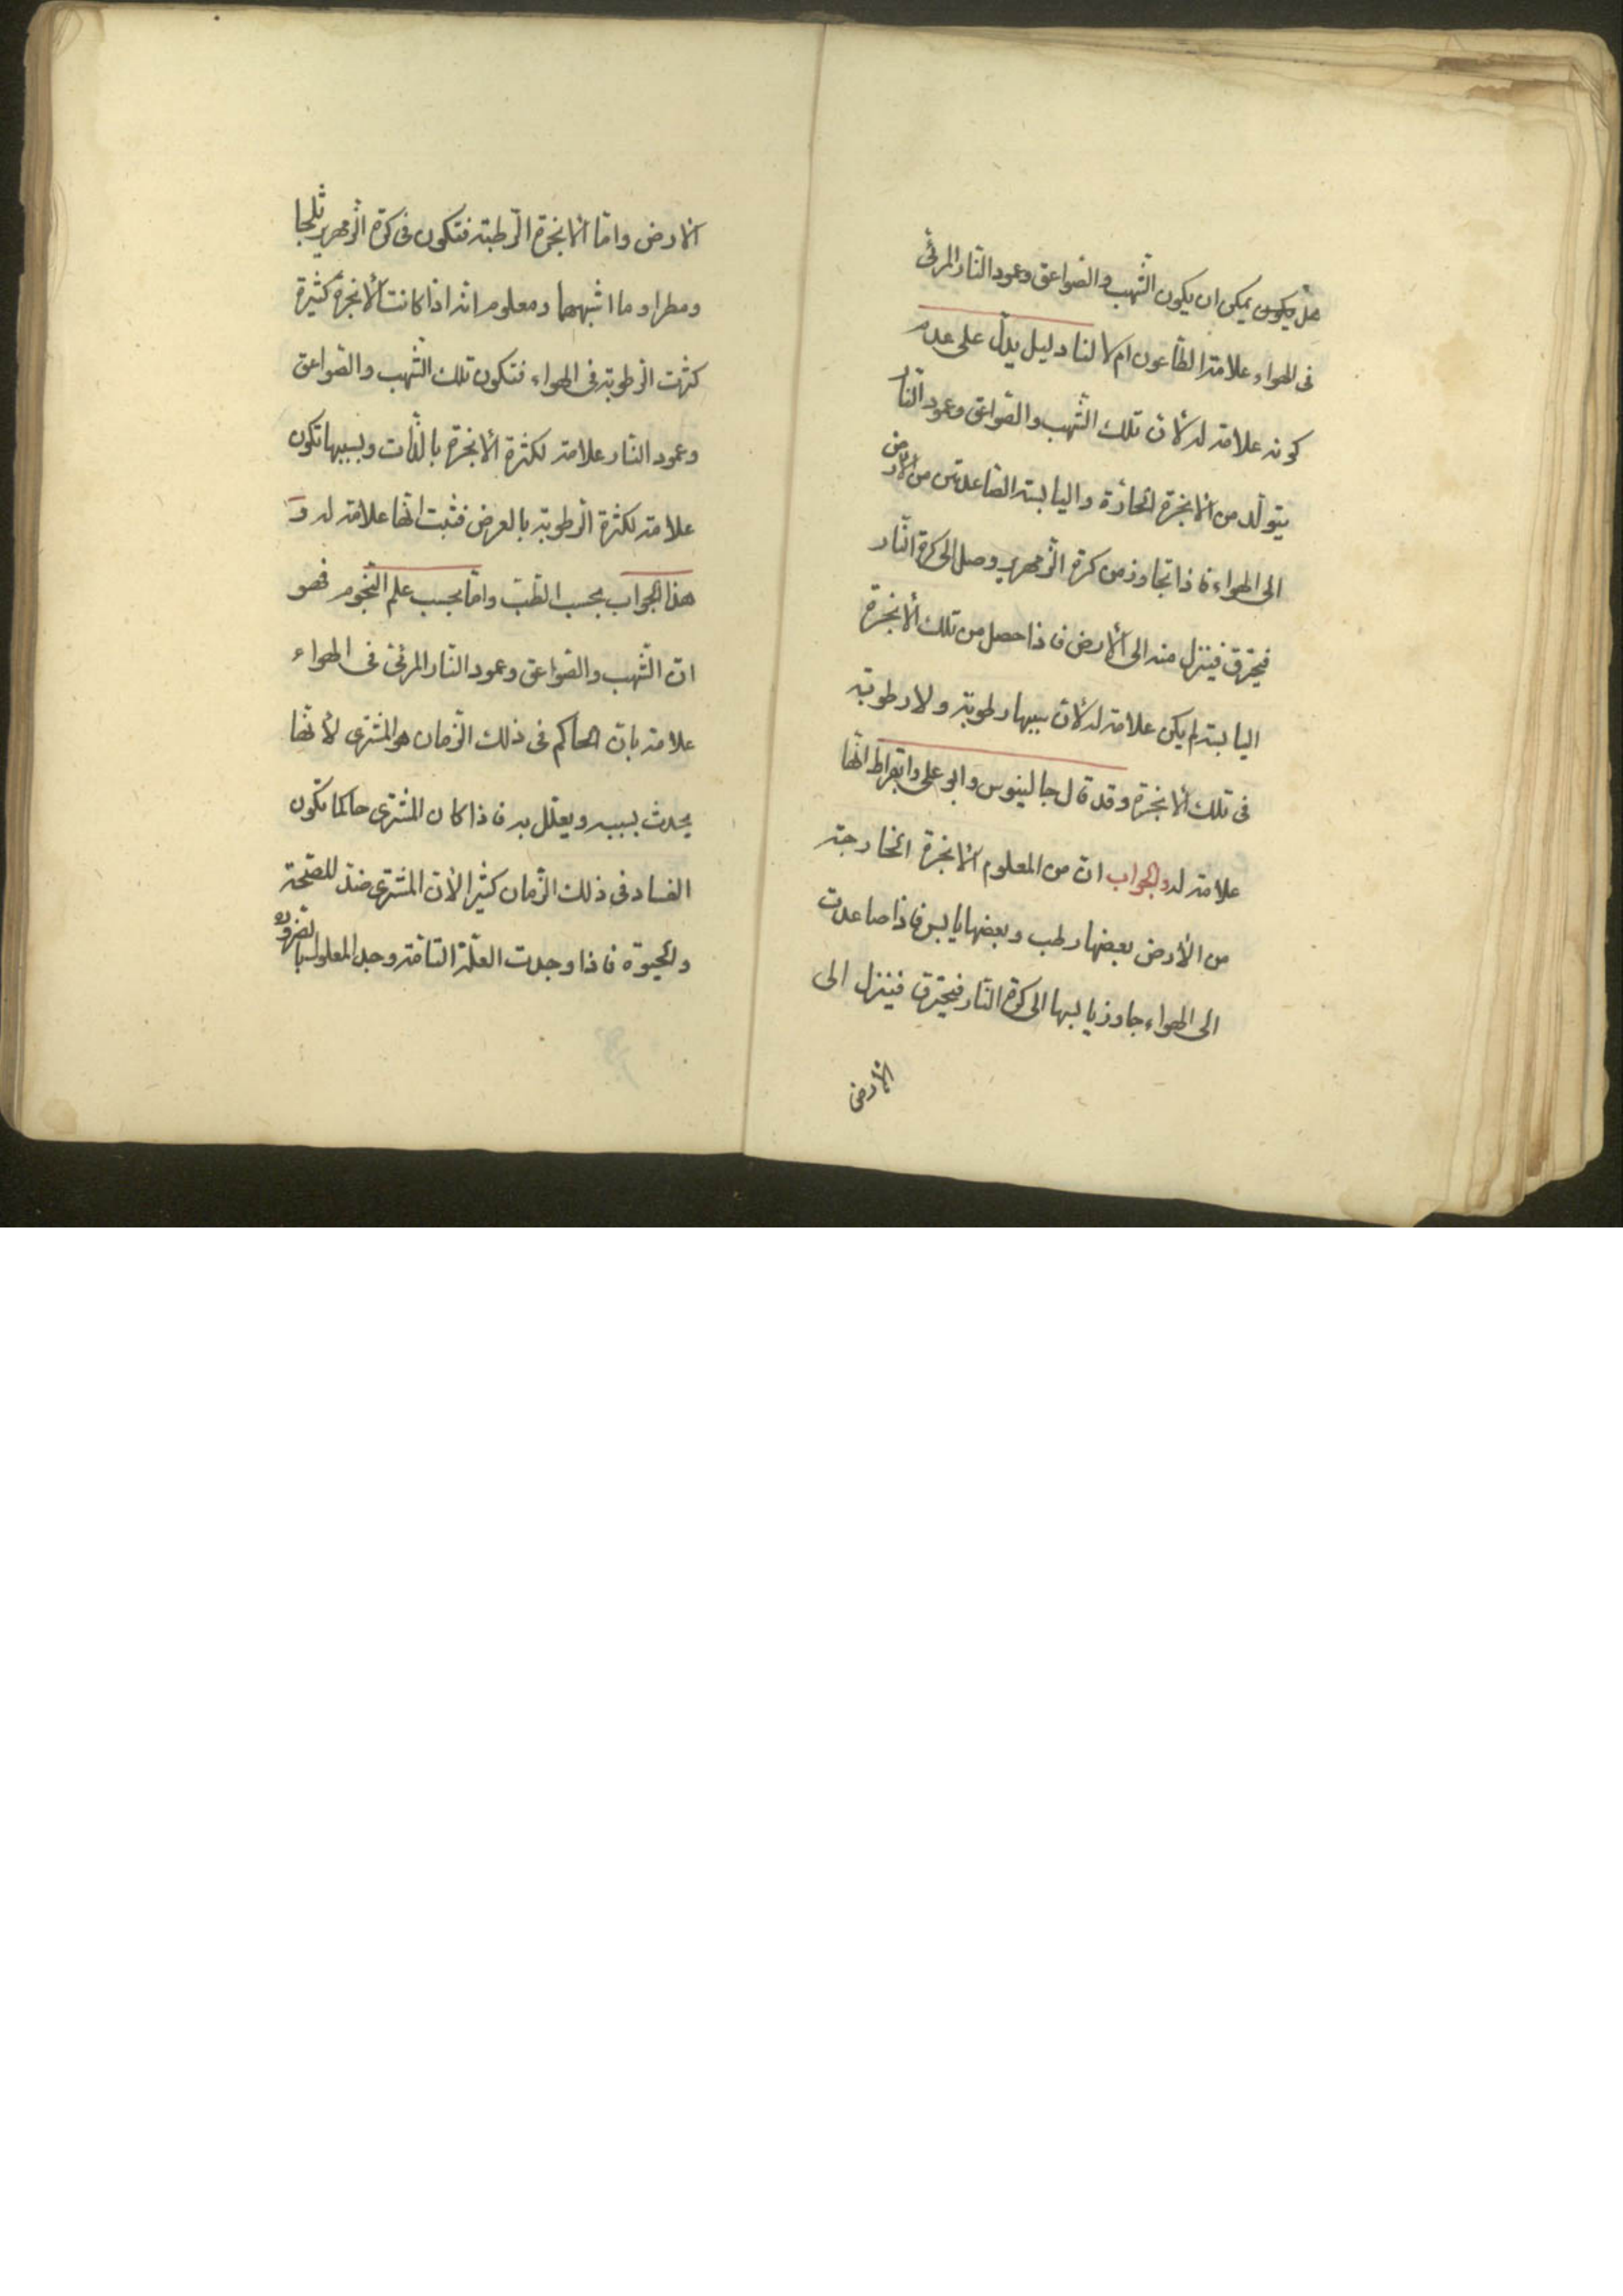 هل يكون يمكن ان يكون الشّهب والصّواعق وعمود النّار المرئى
فى الهواء علامة الطّاعون ام لا لنا دليل يدلّ على عدم
كونه علامة له لانّ تلك الشّهب والصّواعق وعمود النّار
يتولّد من الأبخرة الحارّة واليابسة الصّاعدتين من الأرض
الى الهواء فاذا تجاوز من كرة الزّمهرير وصل الى كرة النّار
فيحترق فينزل منه الى الأرض فاذا حصل من تلك الأبخرة
اليابسة لم يكن علامة له لانّ سببها رطوبة ولا رطوبة
فى تلك الأبخرة وقد قال جالينوس وابو على وابقراط انّها
علامة له والجواب انّ من المعلوم الأبخرة الخارجة
من الأرض بعضها رطب وبعضها يابس فاذا صاعدت
الى الهواء جاوز يابسها الى كرة النّار فيحترق فينزل الى
الأرض
الأرض وامّا الأبخرة الرّطبة فتكون فى كرة الزّمهرير ثلجا
ومطرا وما اشبههما ومعلوم انّه اذا كانت الأبخرة كثيرة
كثرت الرّطوبة فى الهواء فتكون تلك الشّهب والصّواعق
وعمود النّار علامة لكثرة الأبخرة بالذّات وبسببها تكون
علامة لكثرة الرّطوبة بالعرض فثبت انّها علامة له و
هذا الجواب بحسب الطّبّ وامّا بحسب علم النّجوم فهو
انّ الشّهب والصّواعق وعمود النّار المرئىّ فى الهواء
علامة بانّ الحاكم فى ذلك الزّمان هو المشترى لأنّها
يحدث بسببه ويعلّل به فاذا كان المشترى حاكما تكون
الفساد فى ذلك الزّمان كثيرا لأنّ المشترى ضدّ للصّحّة
والحيوة فاذا وجدت العلّة التّامّة وجد المعلول بالضّرورة